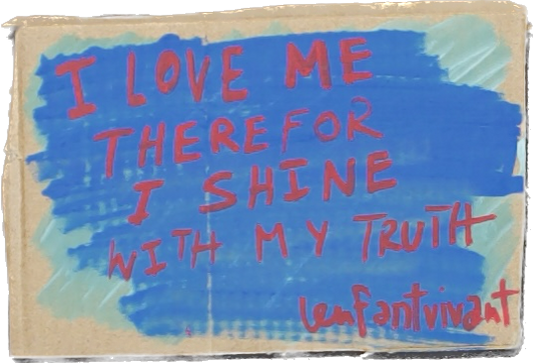 I LOVE ME
THEREFOR
I SHINE
WITH MY TRUTH
lenfantvivant